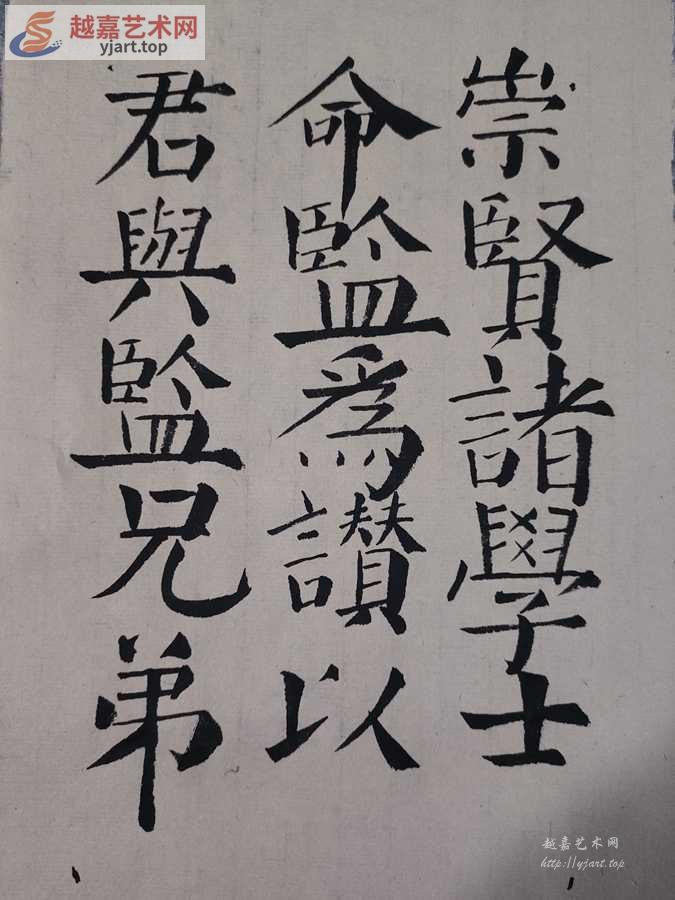 越嘉艺术网
yjart.top
崇賢諸學士
命監為讃以
君與監兄弟
越嘉艺术网
http://yjart.top